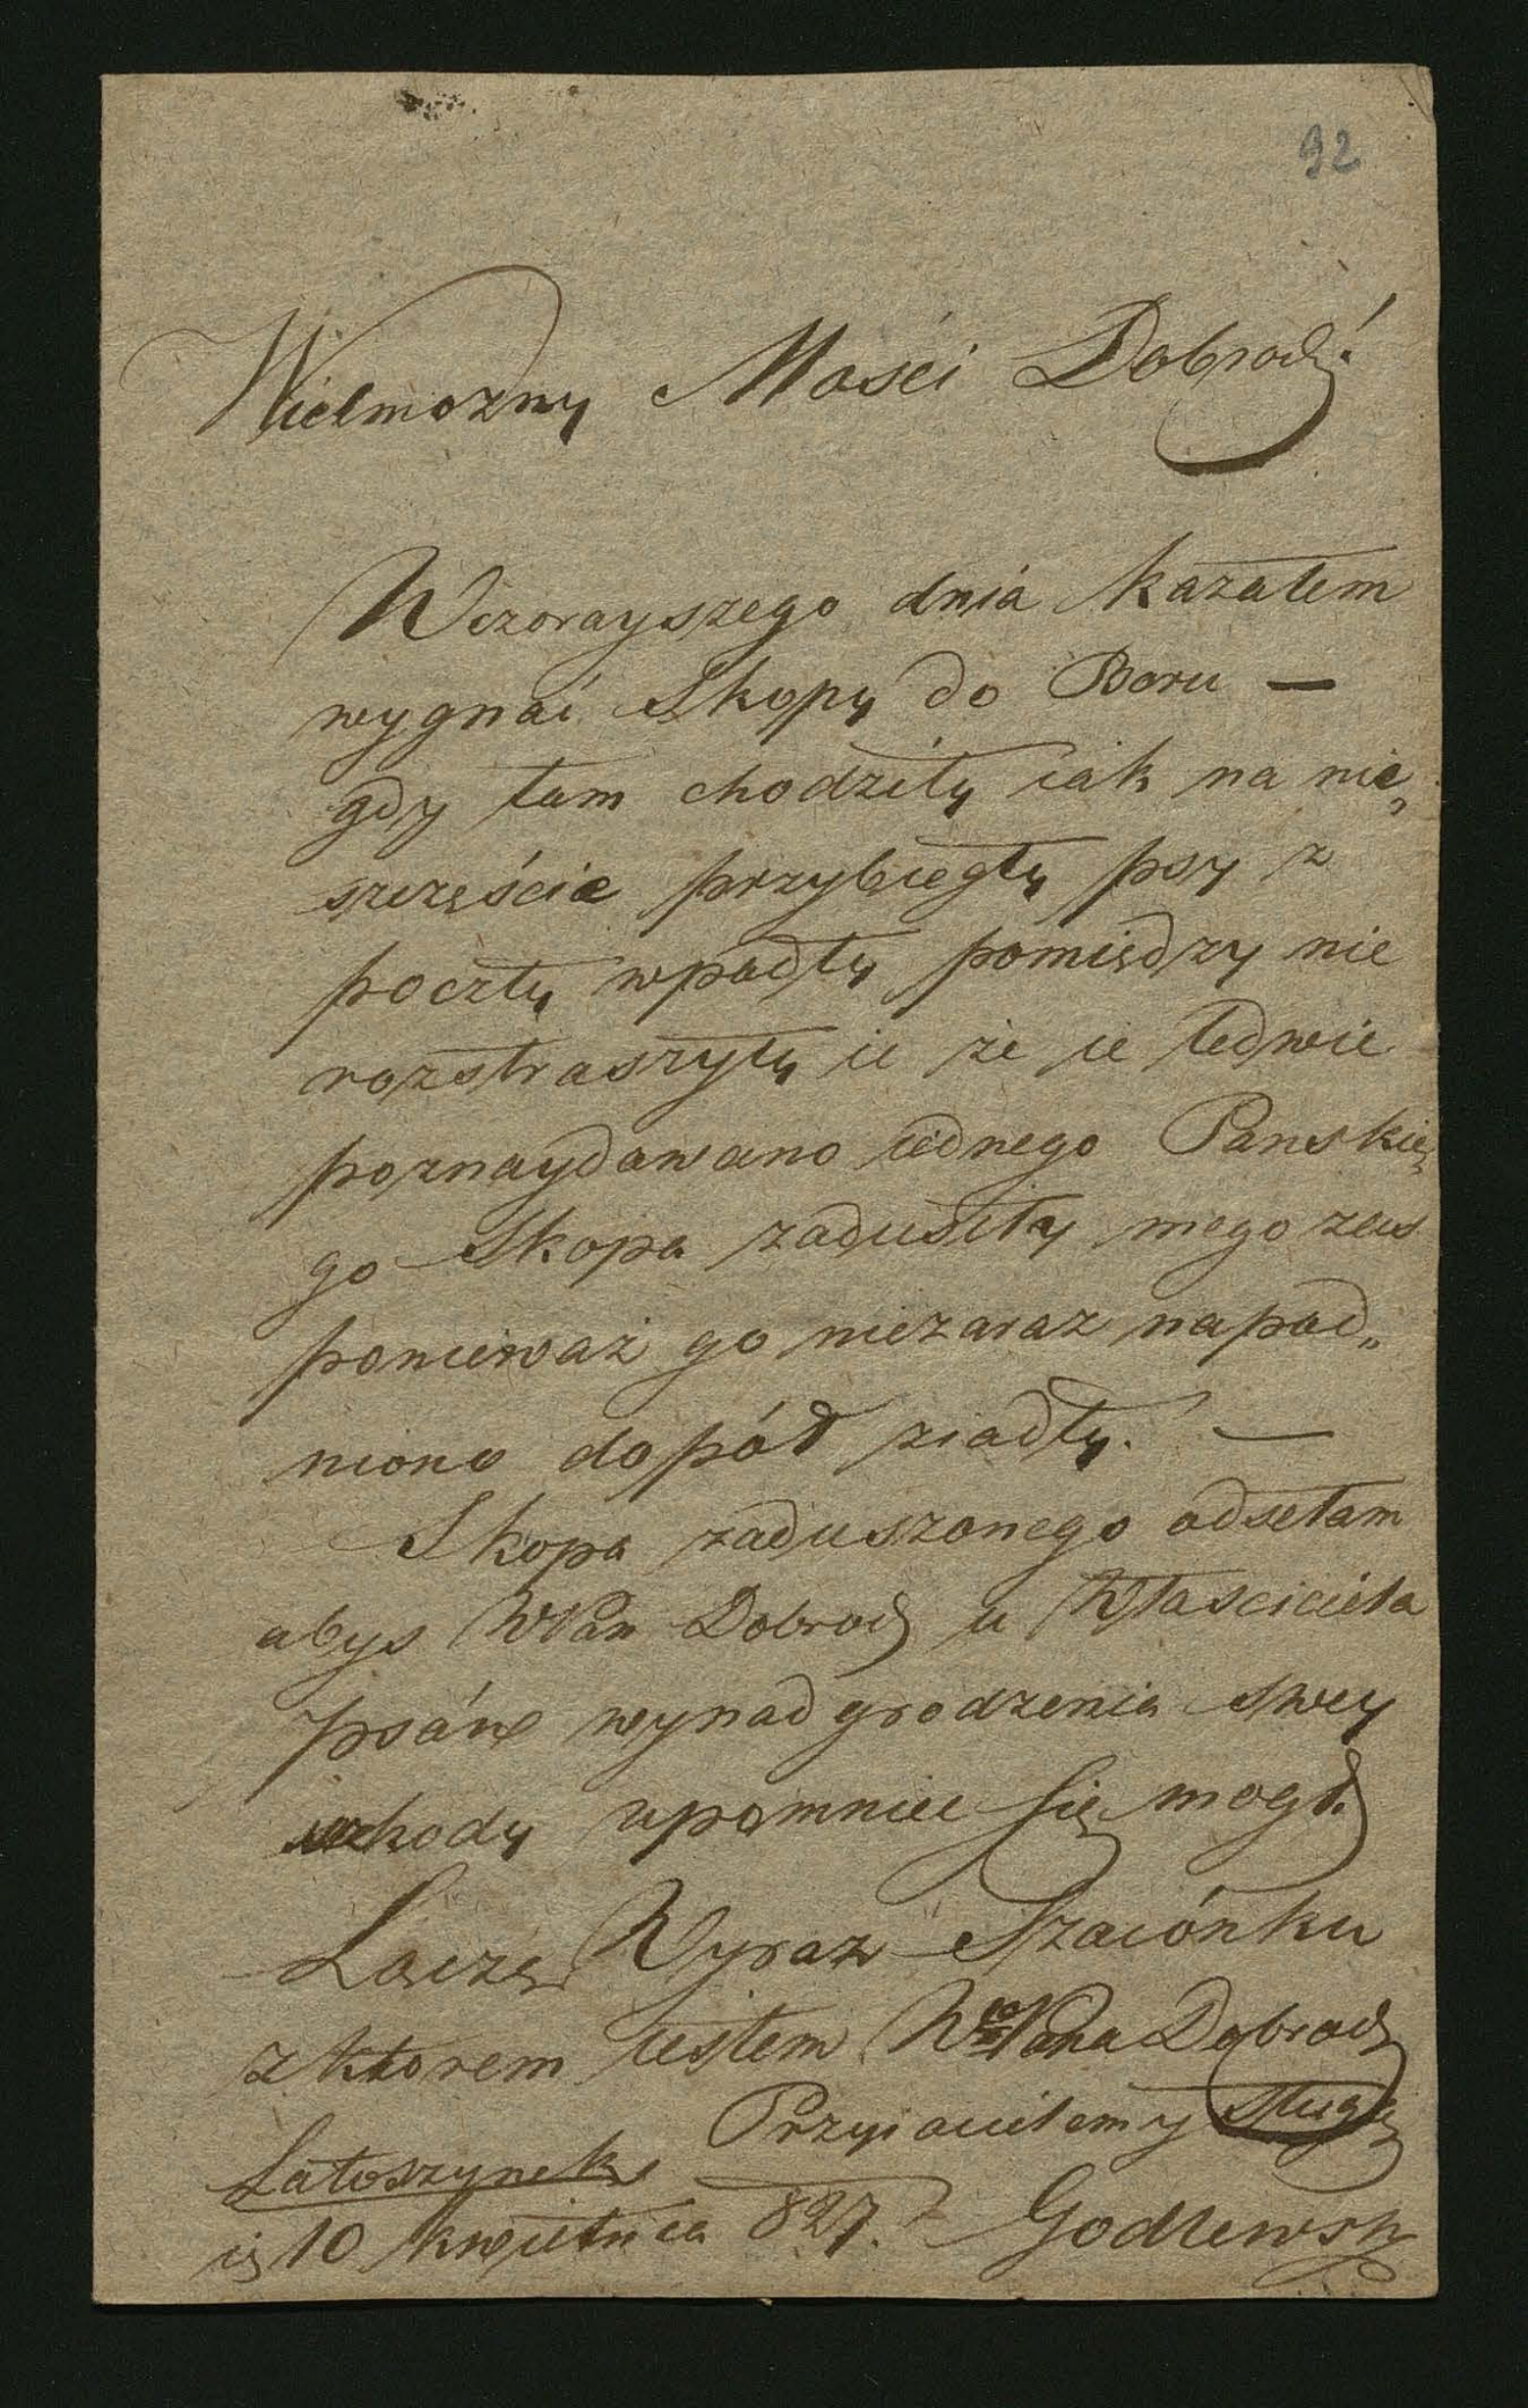 92
Wielmozny Mosci Dobrodź
Wczorayszego dnia kazałem
wygnać Skopy do Boru —
gdy tam chodziły iak na nie„
szczęście przybiegły psy z
poczty wpadły pomiędzy nie
rozstraszyły ie że ie ledwie
poznaydowano iednego Panskie„
go Skopa zadusiły mego zaś
ponieważ go niezaraz napad„
niono dopół ziadły. —
Skopa zaduszonego odsełam
abys WPan Dobrodz u Własciciela
psów wynadgrodzenia swey
szkody upomniec się mogł.
Łączę Wyraz Szacónku
z ktorem iestem WoPana Dobrodz
Przyiacielem y Sługą
Latoszynek
10 kwietnia 827. Godlewsky